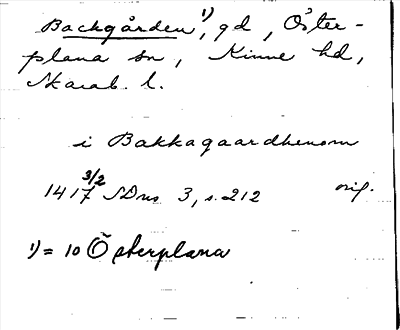 Backgården¹⁾, gd, Öster-
plana sn, Kinne hd,
Skarab. l.
i Bakkagaardhenom
1417 3/2 SDns 3, s. 212 orig.
1) = 10 Österplana